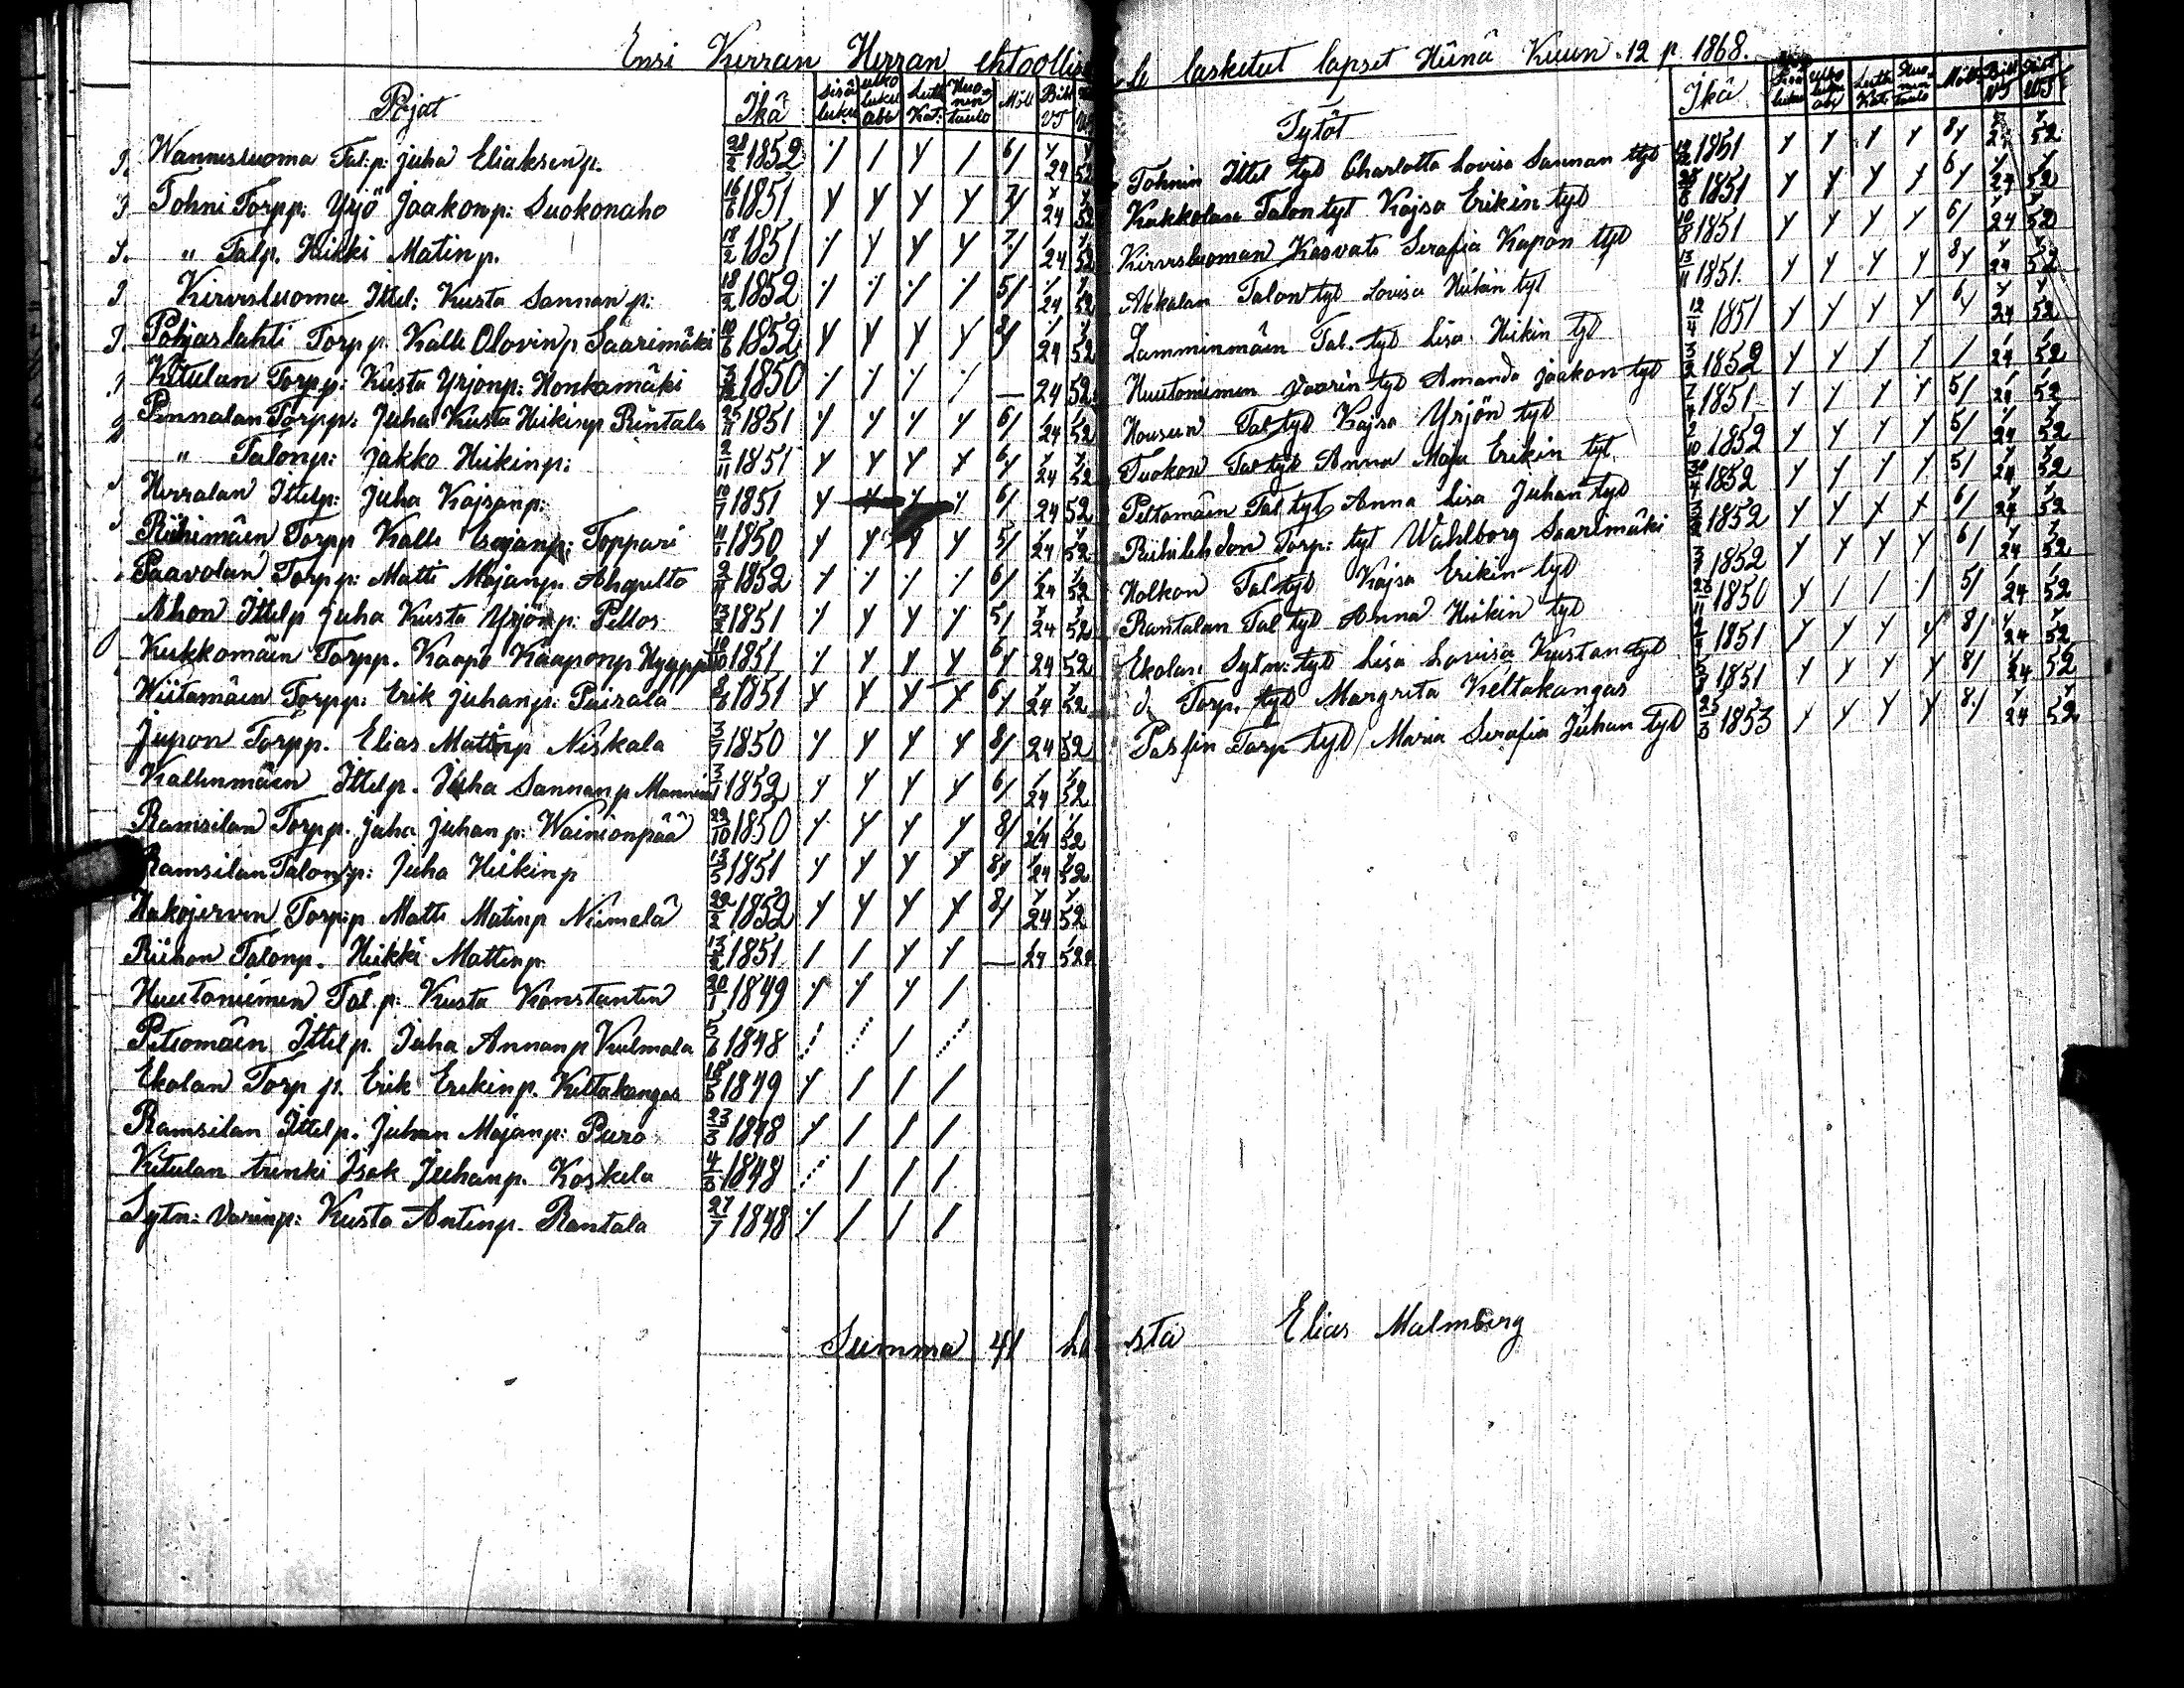 Ensi Kerran Herran ehtoollise le lasketut lapset Heinä Kuun 12 p. 1868.
Pojat Ikä Sisä luku ulko luku abc Luth Kat: Huo-nen taulo Möll Bibl VT
Wannesluoma Tal: p: juha Eliaksen p. 28/2 1852 6/ 24 52
Tohni Torpp: Yrjö Jaakonp: Suokonaho 16/6 1851 7/ 24 52
" Talp. Heikki Matinp. 18/2 1851 7/ 24 52
Kirvesluoma Ittel: Kusta Sannan p: 18/2 1852 5/ 24 52
Pohjaslahti Torp p. Kalle Olovinp Saarimäki 10/6 1852 8/ 24 52
Kitulan Torpp: Kusta Yrjonp: Honkamäki 1850 — 24 52
Pennalan Torpp: Juha Kusta Heikinp Rintala 1851 6/ 24 52
" Talonp: jakko Heikinp: 2/11 1851 6/ 24 52
Herralan Ittelp: Juha Kajsanp: 10/7 1851 6/ 24 52
Riihimäen Torpp Kalle Esajanp: Toppari 1850 5/ 24 52
Paavolan Torpp: Matti Majanp. 1852 6/ 24 52
Ahon Ittelp Juha Kusta Yrjönp: Peltos 13/2 1851 5/ 24 52
Kukkomäen Torpp. Kaapo Kaaponp 1851 6/ 24 52
Wiitamäen Torpp: Erik juhanp: Pairala 8/6 1851 6/ 24 52
Jupon Torpp. Elias Mattinp Niskala 3/7 1850 8/ 24 52
Kallenmäen Ittelp. Juha Sannanp 3/1 1852 6/ 24 52
Ramsilan Torpp. juha juhan p: Wainionpää 22/10 1850 8/ 24 52
Ramsilan Talonp: Juha Heikinp 13/5 1851 8/ 24 52
Hakojerven Torp: p Matti Matinp Niemelä 22/2 1852 8/ 24 52
Riihon Talonp. Heikki Mattinp. 13/2 1851 — 24 52
Huutoniemen Tal. p: Kusta Konstantin 20/1 1849
Ittel p. Juha Annanp Kulmala 5/6 1848
Ekolan Torp p. Erik Erekinp. Keltakangas 18/5 1849
Ramsilan Ittelp. Juhan Majanp: Puro 23/3 1848
Kitulan trenki Isak Juhanp. Koskela 4/3 1848
Sytn: Varinp: Kusta Antinp. Rantala 27/7 1848
Summa 41 La
Tytöt Ikä Sisä luku ulko luku abc Luth Kat: Huo-nen taulo Möll Bibl VT
Tohnin Ittel tyt Charlotta Lovisa Sannan tyt 1851 8/ 52
Kakkolan Talon tyt Kajsa Erikin tyt 1851 6/ 24 52
Kirvesluoman Kasvate Serafia Kapon tyt 10/8 1851 6/ 24 52
Akkalan Talon tyt Lovisa Heikin tyt 13/11 1851. 8/ 24 52
Lamminmäen Tal. tyt Lisa Heikin tyt 12/4 1851 6/ 24 52
Huutoniemen Vaarin tyt Amanda jaakon tyt 3/2 1852 / 24 52
Housun Tal tyt Kajsa Yrjön tyt 1851 5/ 24 52
Tuokon Tal tyt Anna Maja Erikin tyt. 2/10 1852 5/ 24 52
Peltomäen Tal tyt Anna Lisa Juhan tyt 1852 5/ 24 52
Riihilehdon Torp: tyt Wahlborg Saarimäki 1852 6/ 24 52
Holkon Tal tyt Kajsa Erikin tyt 1852 6/ 24 52
Rantalan Tal tyt Anna Heikin tyt 1850 5/ 24 52
Ekolan Sytn: tyt Lisa Lovisa Kustan tyt 1851 8/ 24 52
d: Torp. tyt Margreta Keltakangas 1851 8/ 24 52
Torp tyt Maria Serafia Juhan tyt 1853 8/ 24 52
sta Elias Malmberg